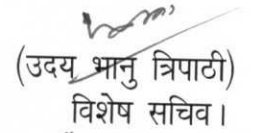 (उदय भानु त्रिपाठी)
विशेष सचिव।